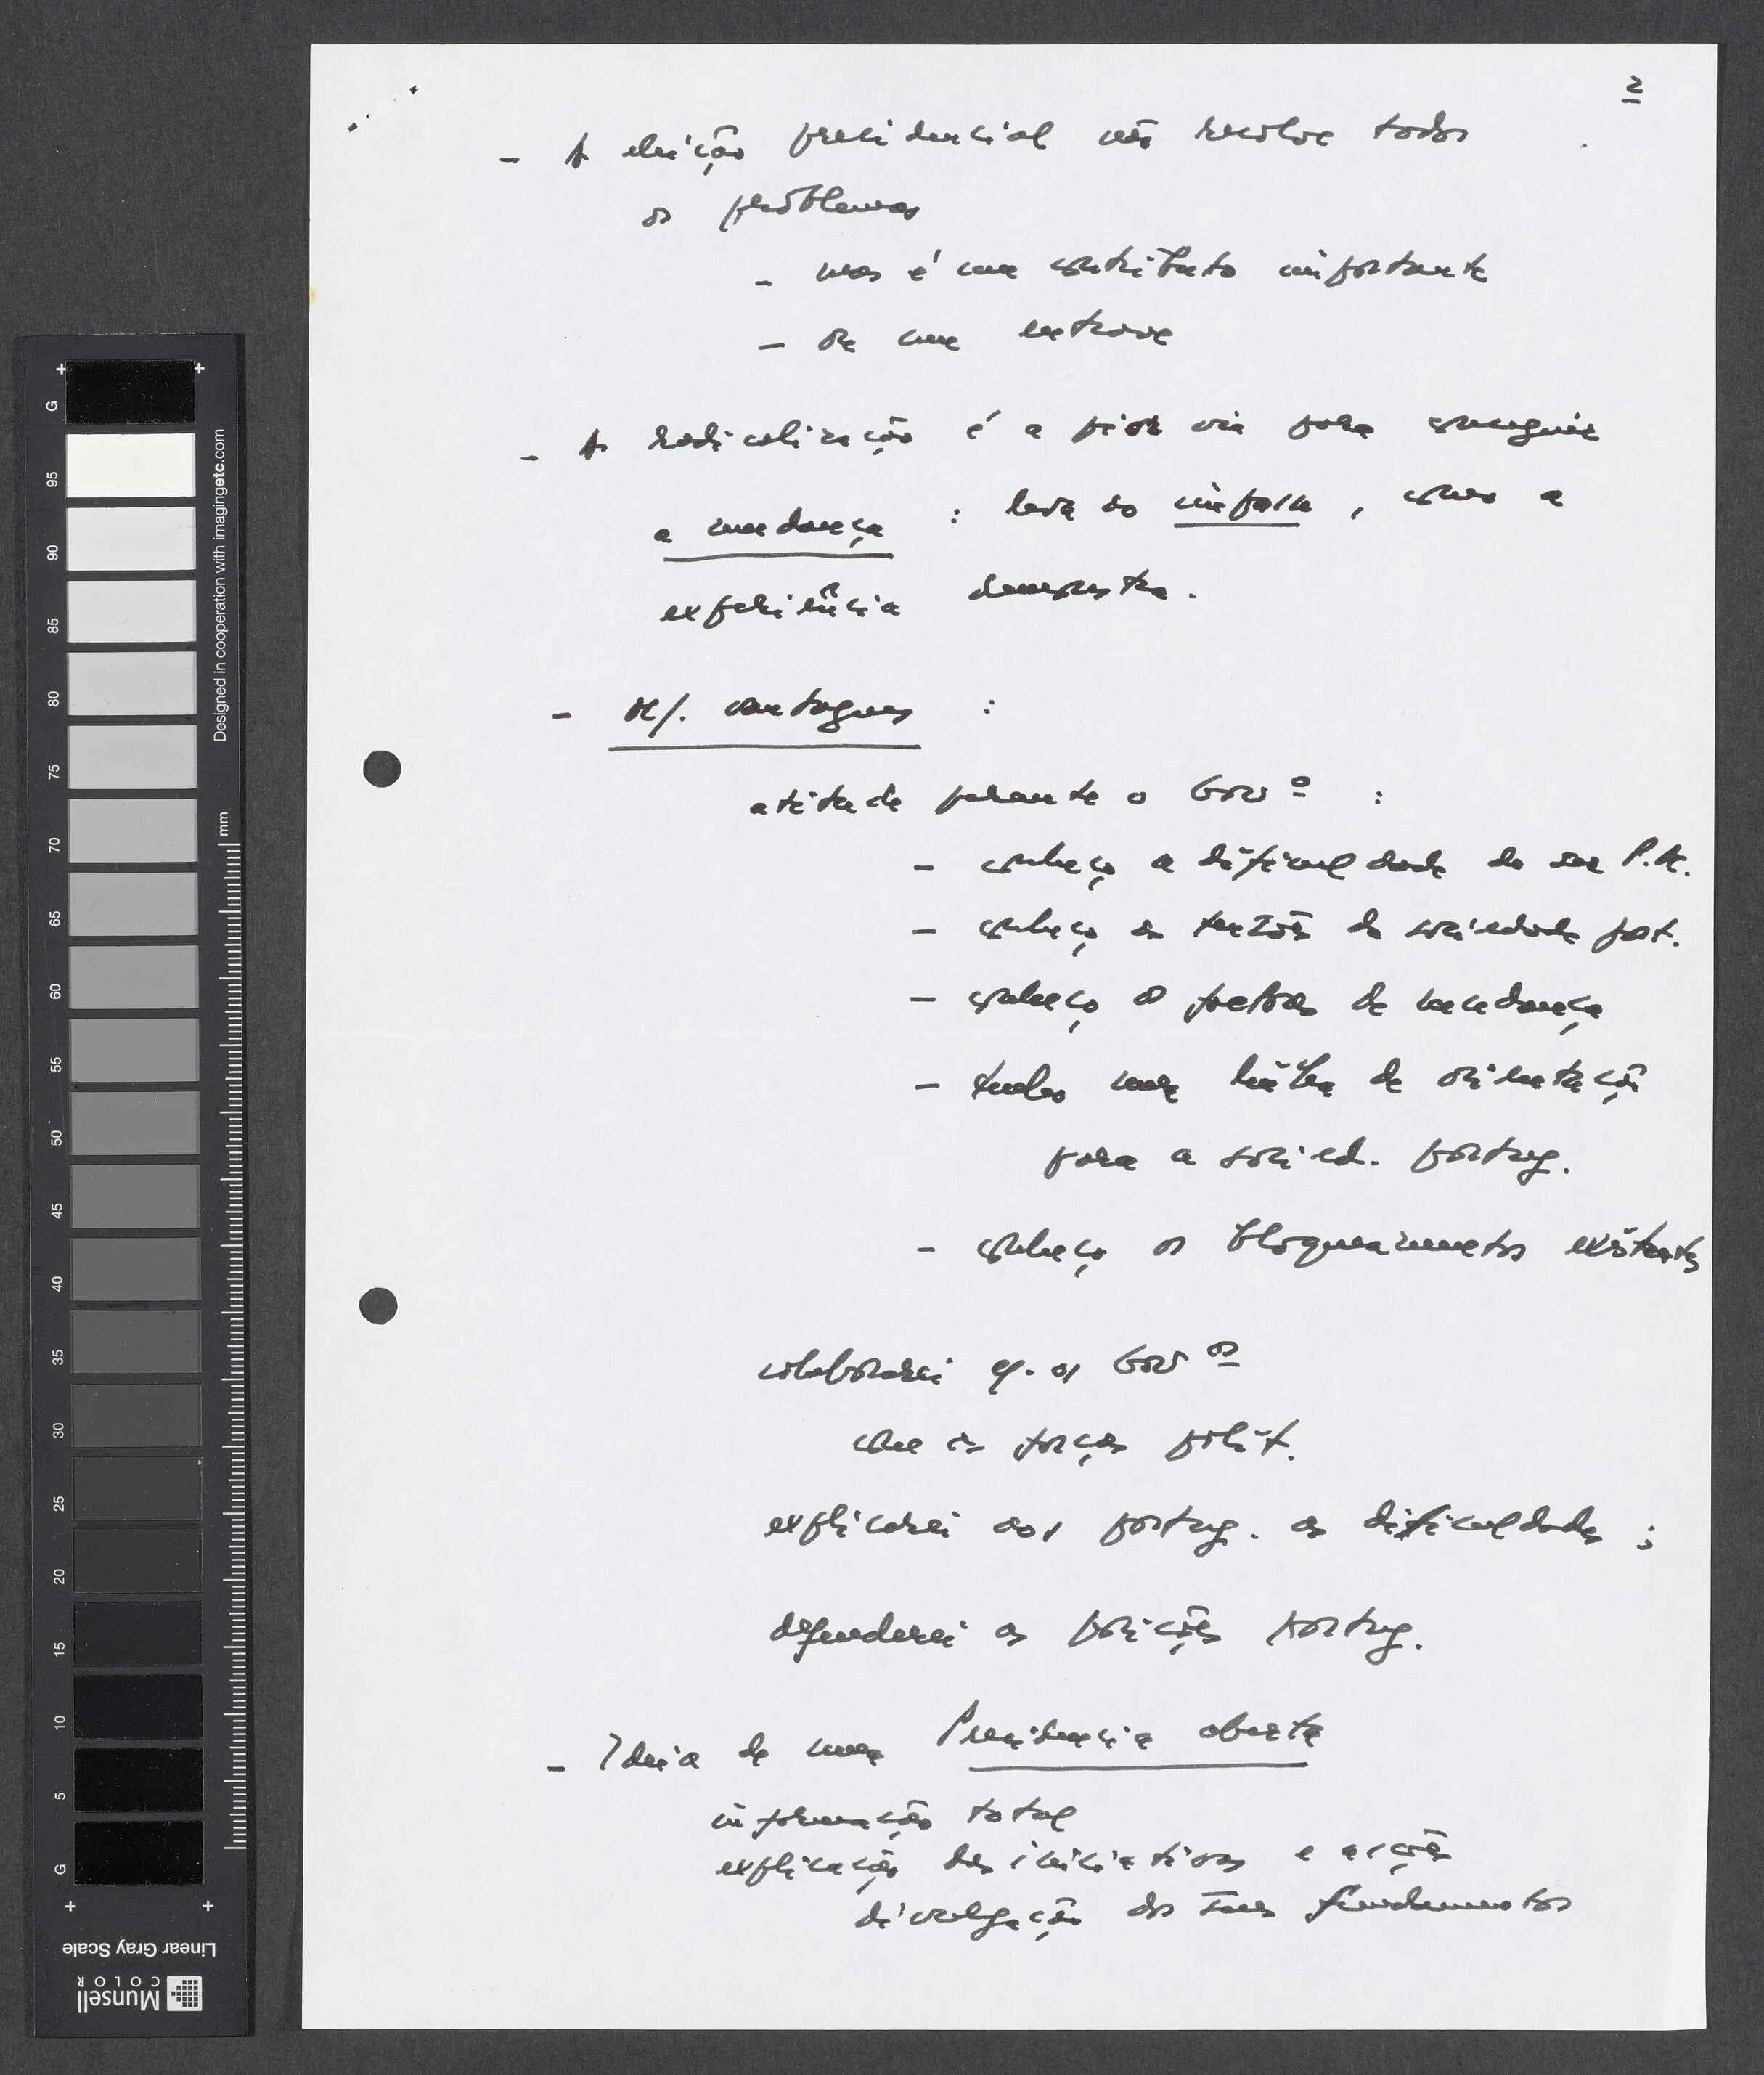 2
- A eleição presidencial não resolve todos
os problemas
- mas é um contributo importante
- ou um entrave
- A radicalização é a pior via para conseguir
a mudança : leva ao impasse , como a
experiência demonstra.
- M/. vantagens :
atitude perante o Govº :
- conheço a dificuldade do ser P.M.
- conheço as tensões da sociedade port.
- conheço os factores de mudança
- tenho uma linha de orientação
para a socied. portug.
- conheço os bloqueamentos existentes
colaborarei c/. os Govos
com as forças polít.
explicarei aos portug. as dificuldades ;
defenderei as posições portug.
- Ideia de uma Presidência aberta
informação total
explicação das iniciativas e acções
divulgação dos seus fundamentos
G
95
90
85
80
75
70
65
60
55
50
45
40
35
30
25
20
15
10
5
G
mm
Designed in cooperation with imagingetc.com
Linear Gray Scale
Munsell
COLOR